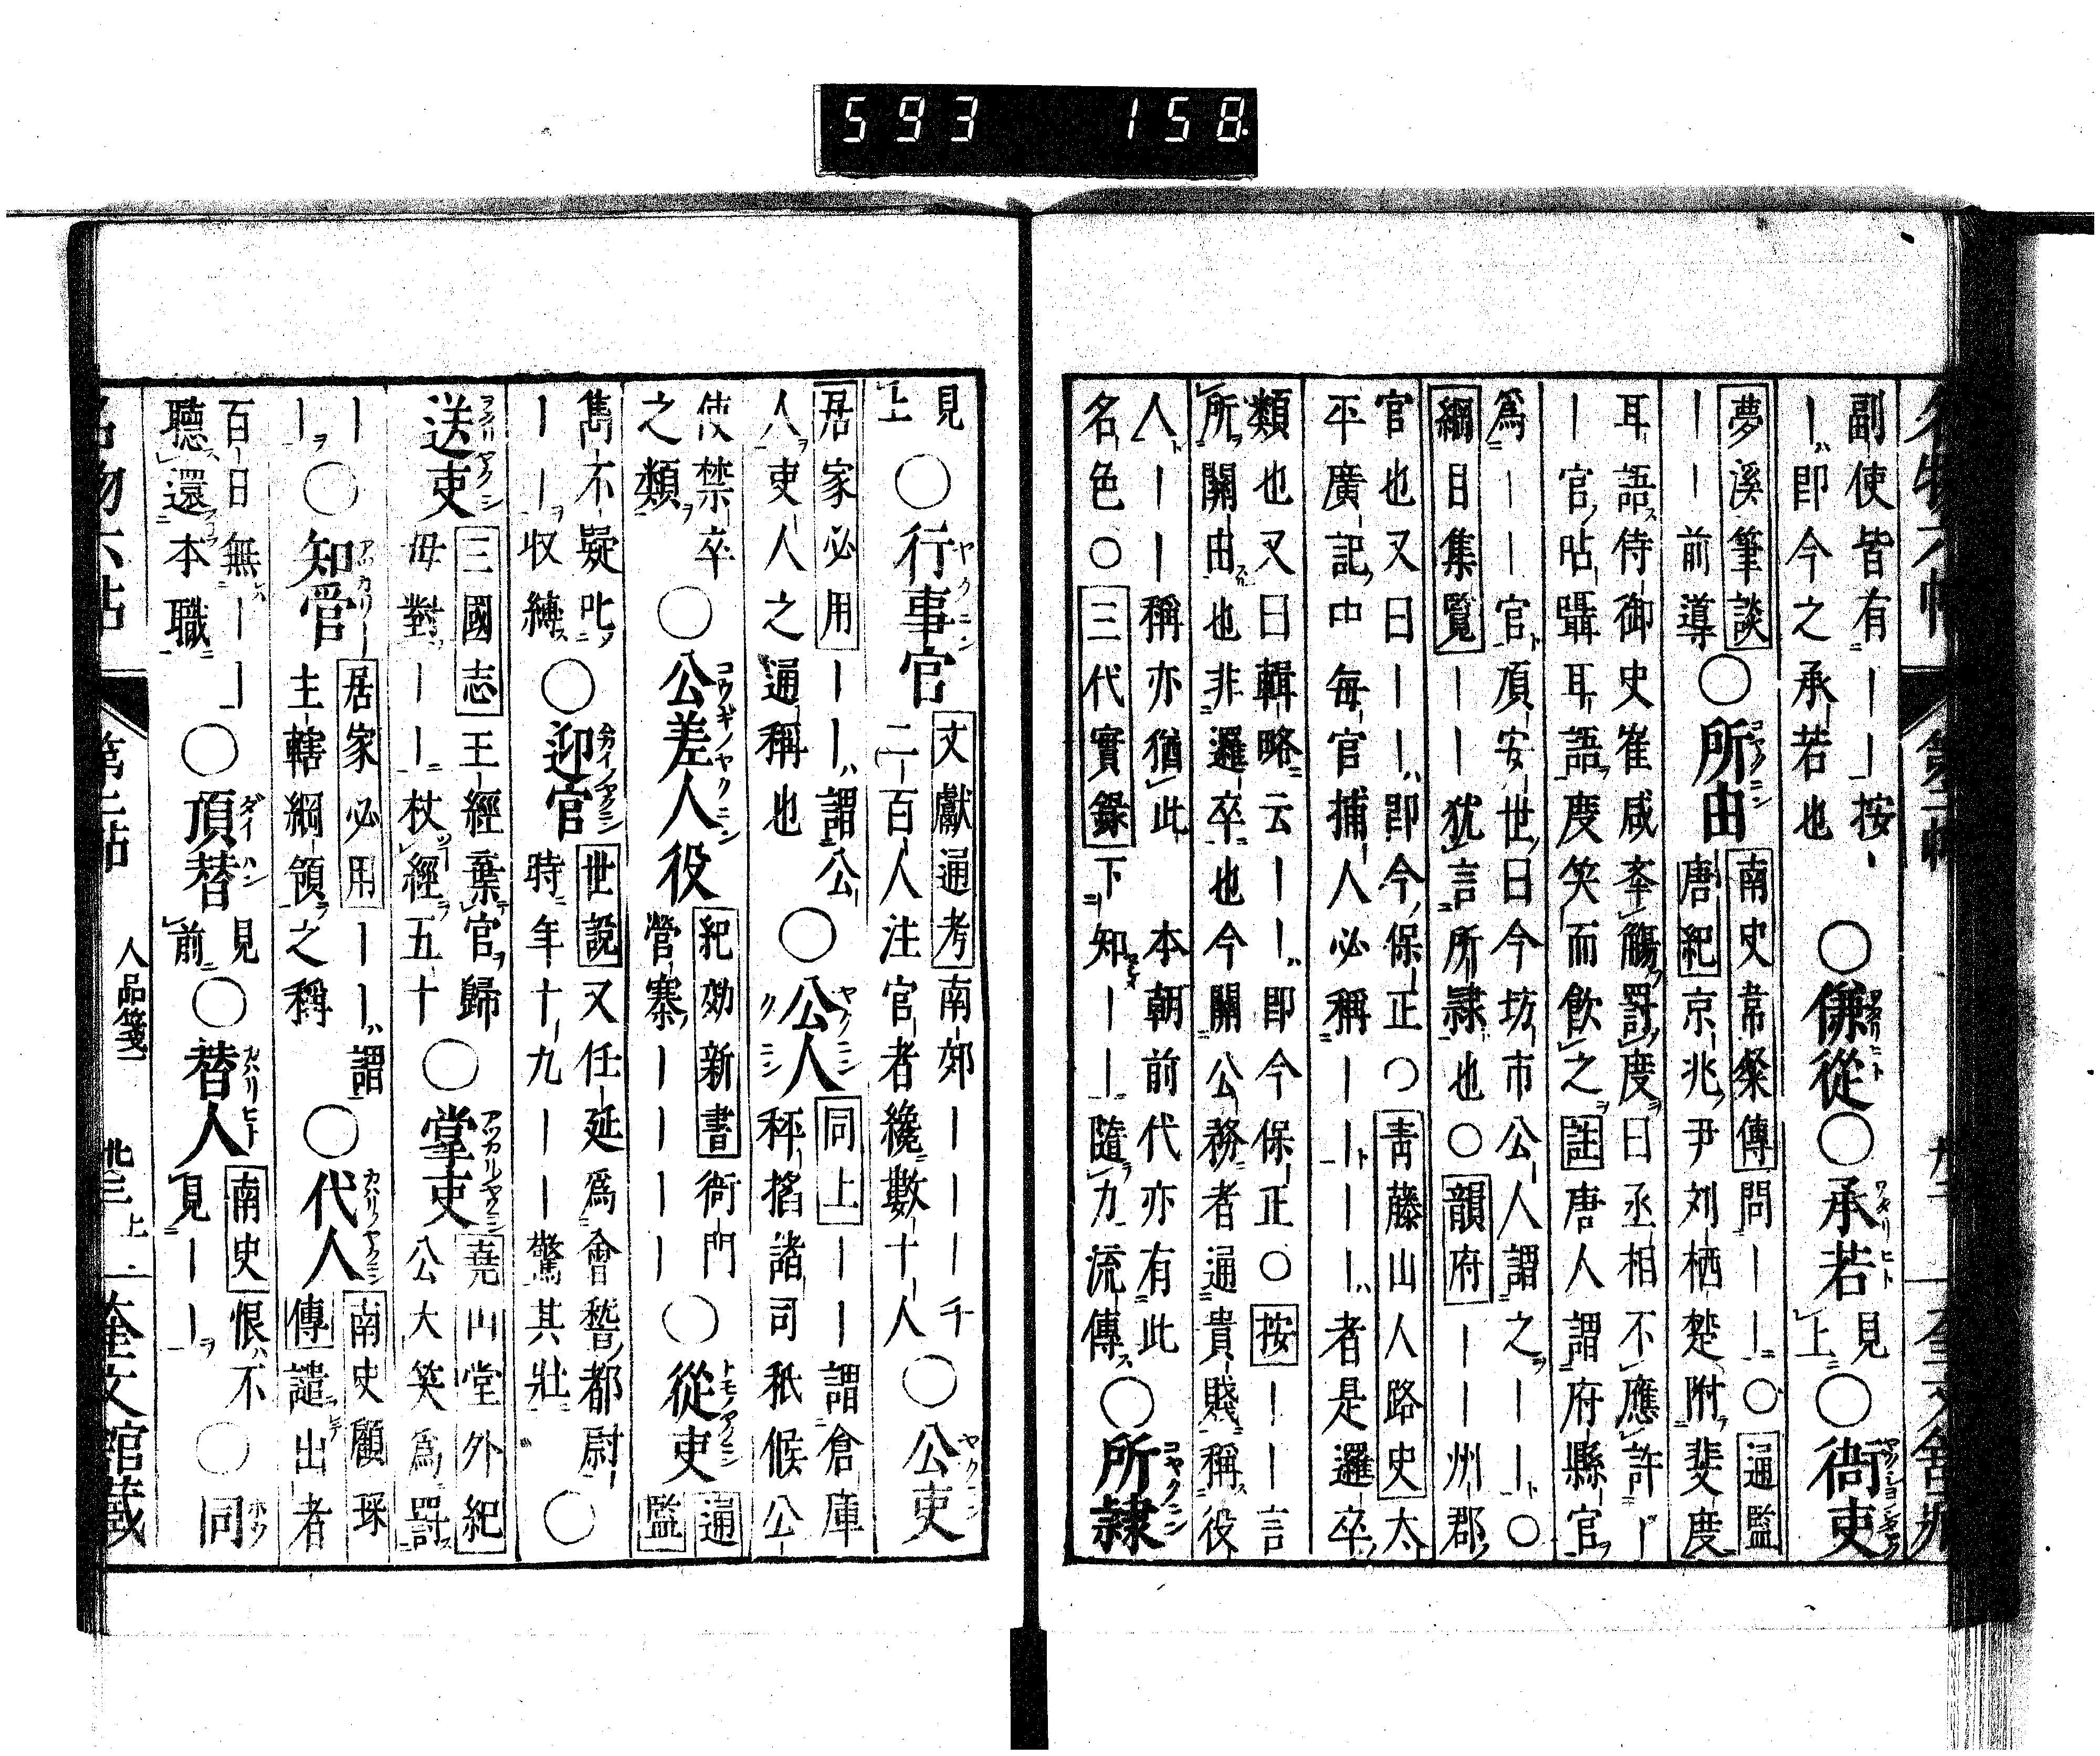 593 158
副使皆有｜｜按
｜即今之承若也
○傔從○承若見上○衙吏
夢溪筆談
｜｜前導○所由南史常粲傳問｜｜○通鑑
唐紀京兆尹刘栖楚附斐度
耳語侍御史崔咸奉觴罰度曰丞相不應許｜
｜官呫聶耳語度笑而飲之註唐人謂府縣官
爲｜｜官項安世曰今坊市公人謂之｜｜○
綱目集覧｜｜｜猶言所隷也○韻府｜｜州郡
官也又曰｜｜即今保正○青藤山人路史太
平廣記中毎官捕人必稱｜｜｜｜者是邏卒
類也又曰輯略云｜｜即今保正○按｜｜言
所關由也非邏卒也今關公務者通貴賤稱役
人｜｜稱亦猶此 本朝前代亦有此
名色○三代實録下知｜｜隨力流傳○所隷
見上○行事官文獻通考南郊｜｜｜千
二百人注官者纔數十人○公吏
居家必用｜｜謂公
人吏人之通稱也○公人同上｜｜謂倉庫
秤搯諸司秖候公
使禁卒
之類○公差人役紀効新書衙門
營寨｜｜｜｜○從吏通鑑
雋不疑叱
｜｜収縛○迎官世説又任延爲會稽都尉
時年十九｜｜驚其壯○
送吏三國志王經葉官歸
毋對｜｜杖經五十○堂吏堯山堂外紀
公大笑爲罰
｜｜○知官居家必用｜｜謂
主轄綱領之稱○代人南史顧琛
傳譴出者
百日無｜｜
聽還本職○頂替見前○替人南史恨不
見｜｜○同
名物六帖 第二帖 人品箋一 上 奎文館藏